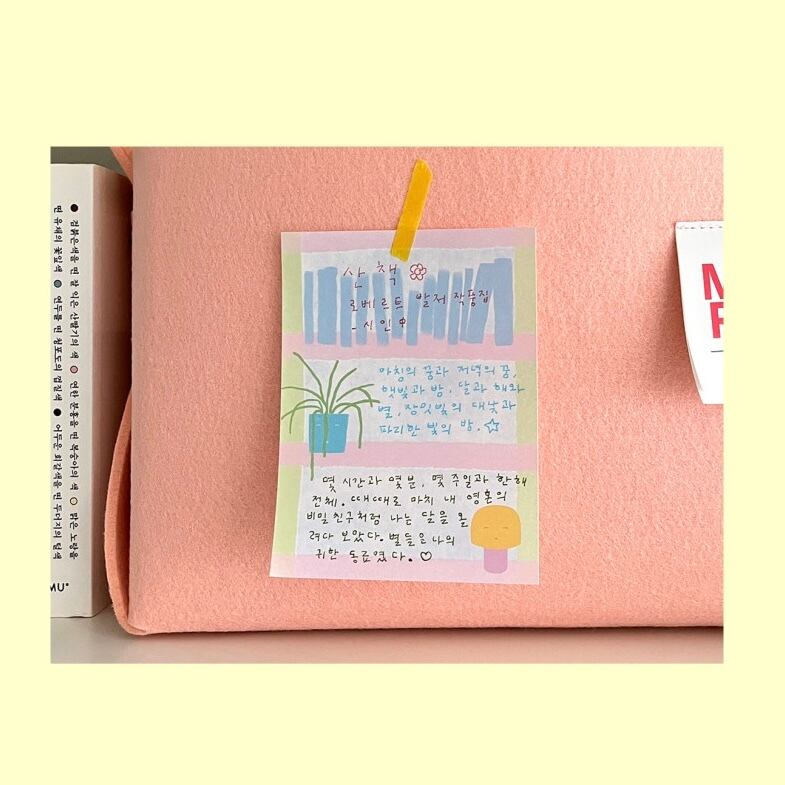 산책
로베르트 발저 작품집
- 시인
아침의 꿈과 저녁의 꿈,
햇빛과 밤. 달과 해와
별, 장밋빛의 대낮과
파리한 빛의 밤.
몇 시간과 몇 분, 몇 주일과 한 해
전체. 때때로 마치 내 영혼의
비밀친구처럼 나는 달을 올
려다 보았다. 별들은 나의
귀한 동료였다.
검붉은색을 띤 잘 익은 산딸기의 색
연한 분홍을 띤 복숭아의 색
맑은 노랑을
띤 유채의 꽃잎색
연두를 띤 청포도의 껍질색
어두운 회갈색을 띤 두더지의 털색
MU
M